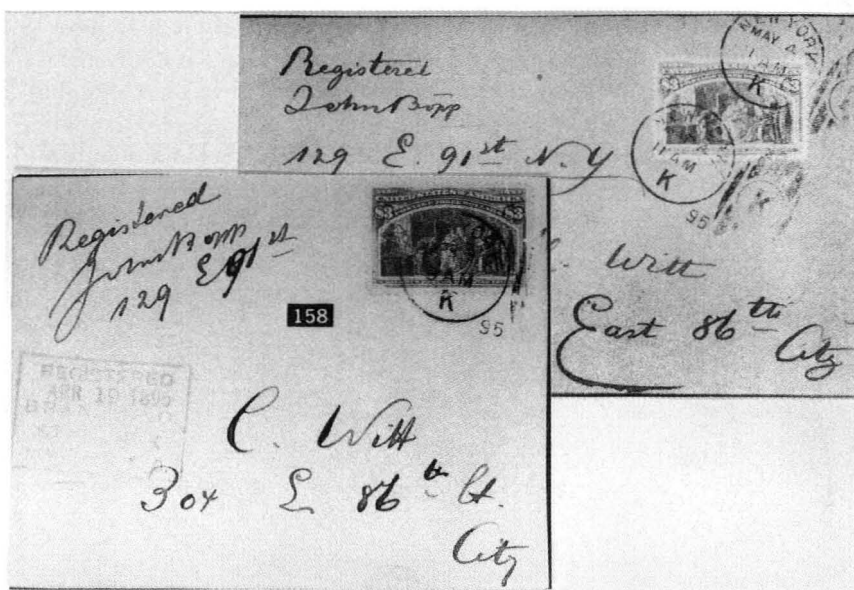 Registered
John Bopp
129 E. 91st N.Y
NEW YORK
MAY 4
1 AM
K
$2
11 AM
K
95
Witt
East 86th
City
Registered
John Bopp
129 E 91st
UNITED STATES OF AMERICA
$3 $3
9 AM
K
95
158
REGISTERED
APR 19 1895
C. Witt
304 E 86th St.
City